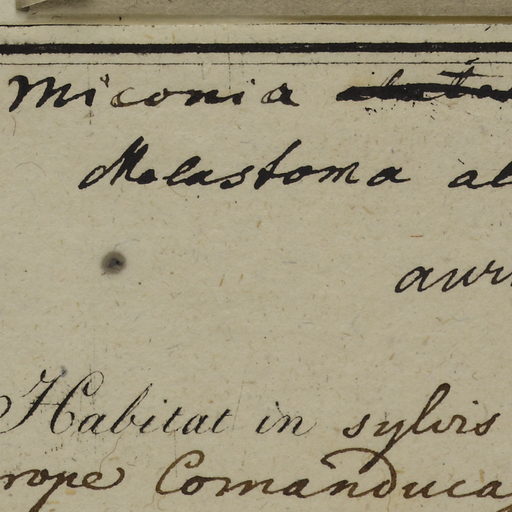 Miconia
Melastoma al
aur
Habitat in sylvis
rope Comanduca